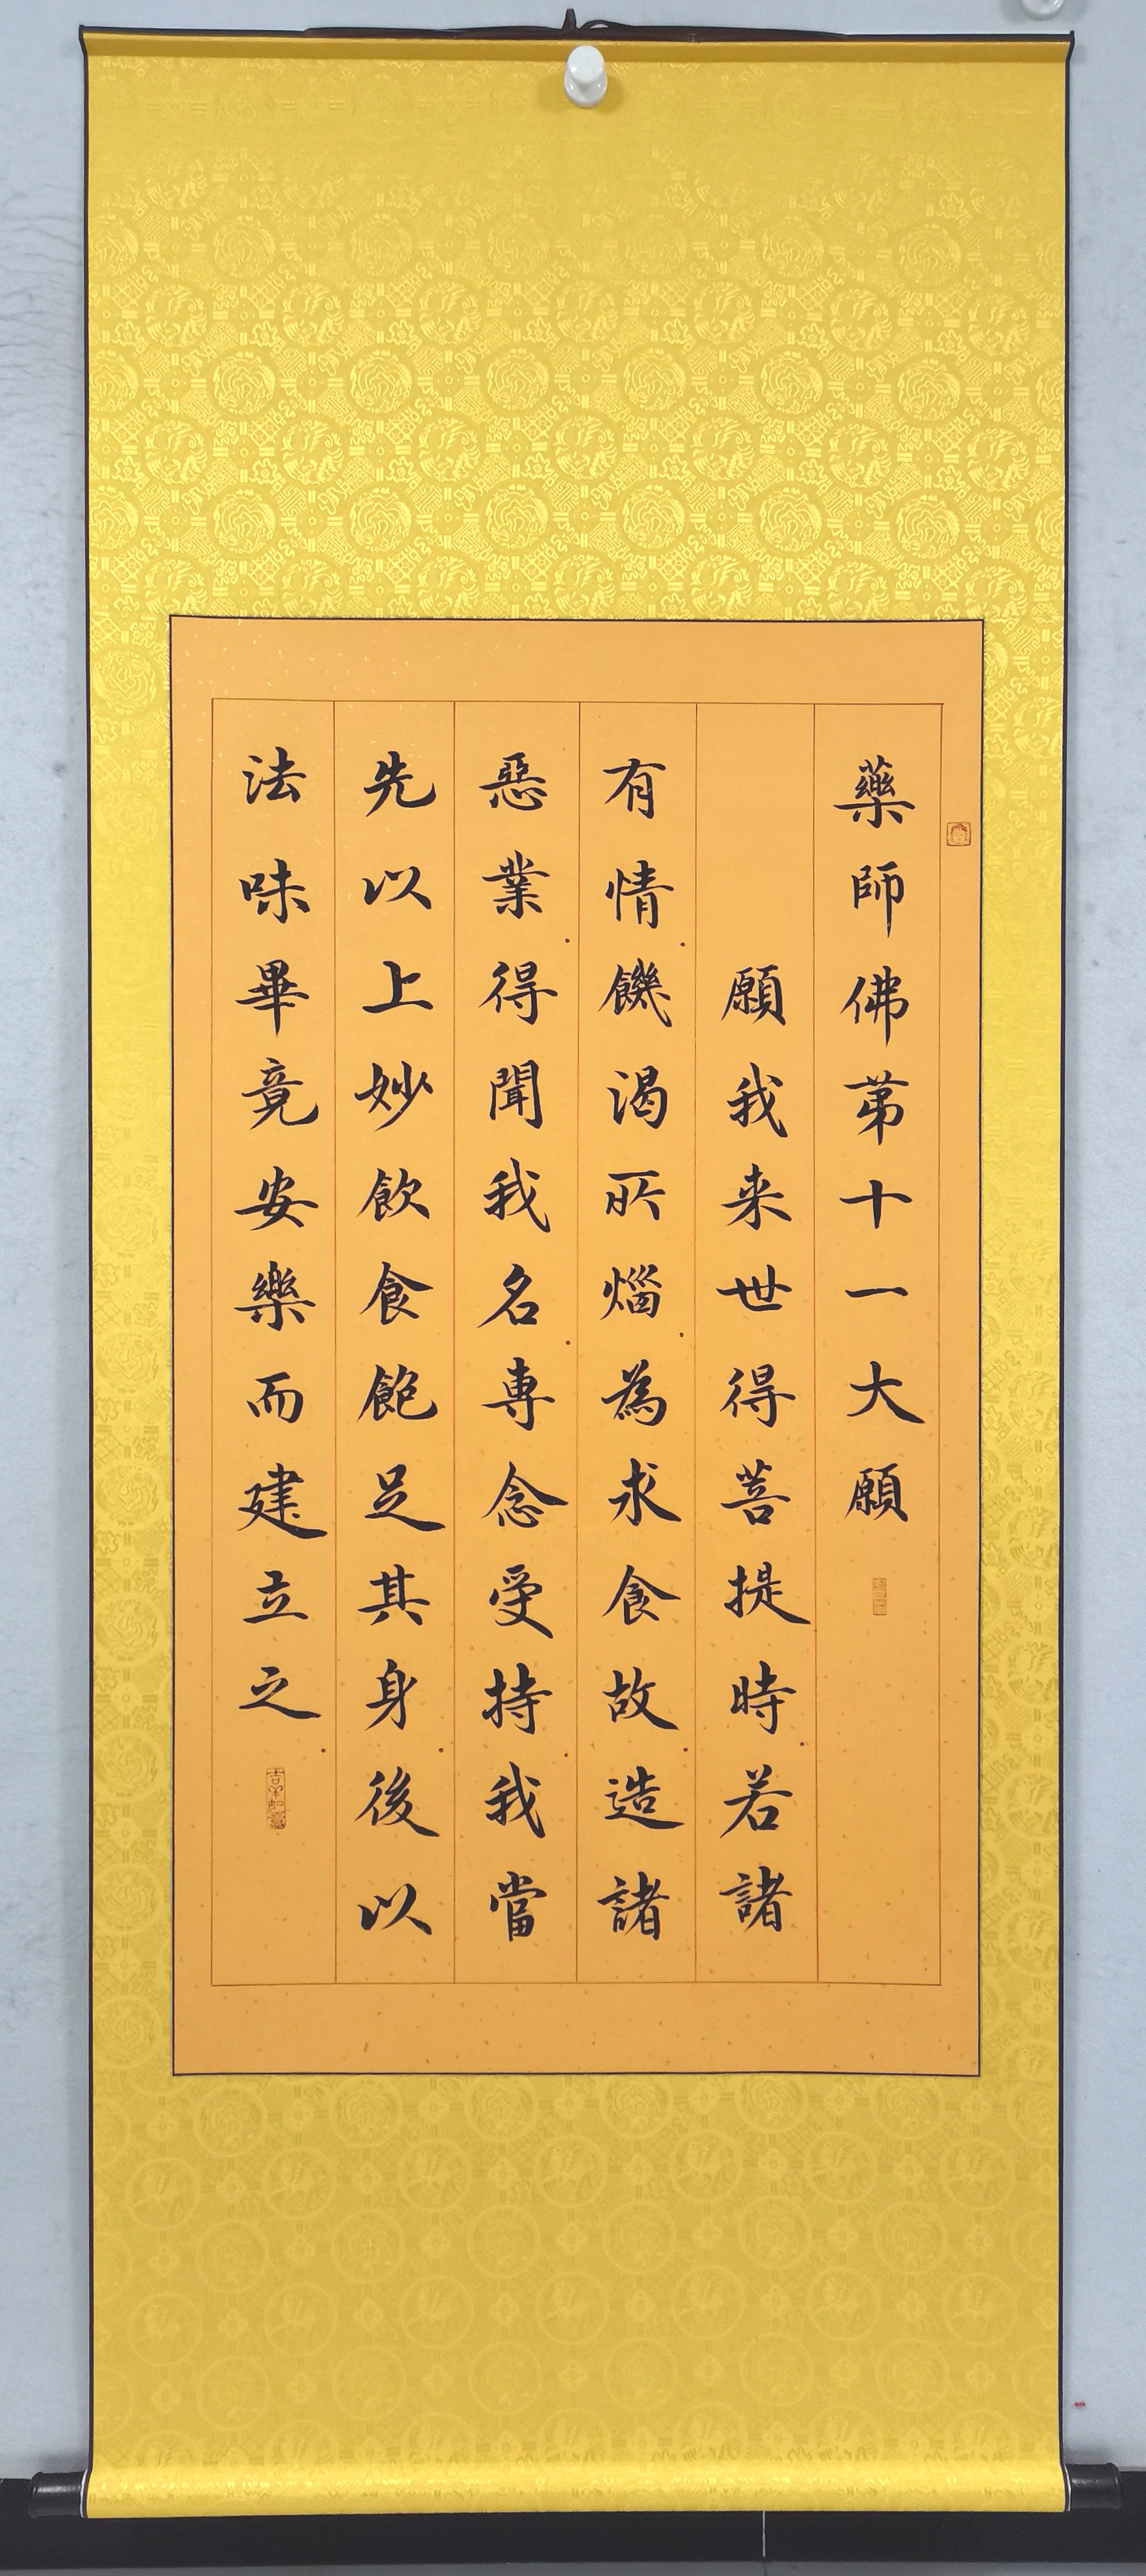 藥師佛苐十一大願
願我来世得菩提時若諸
有情饑渴所惱為求食故造諸
惡業得聞我名専念受持我當
先以上妙飲食飽足其身後以
法味畢竟安樂而建立之
吉羊如意